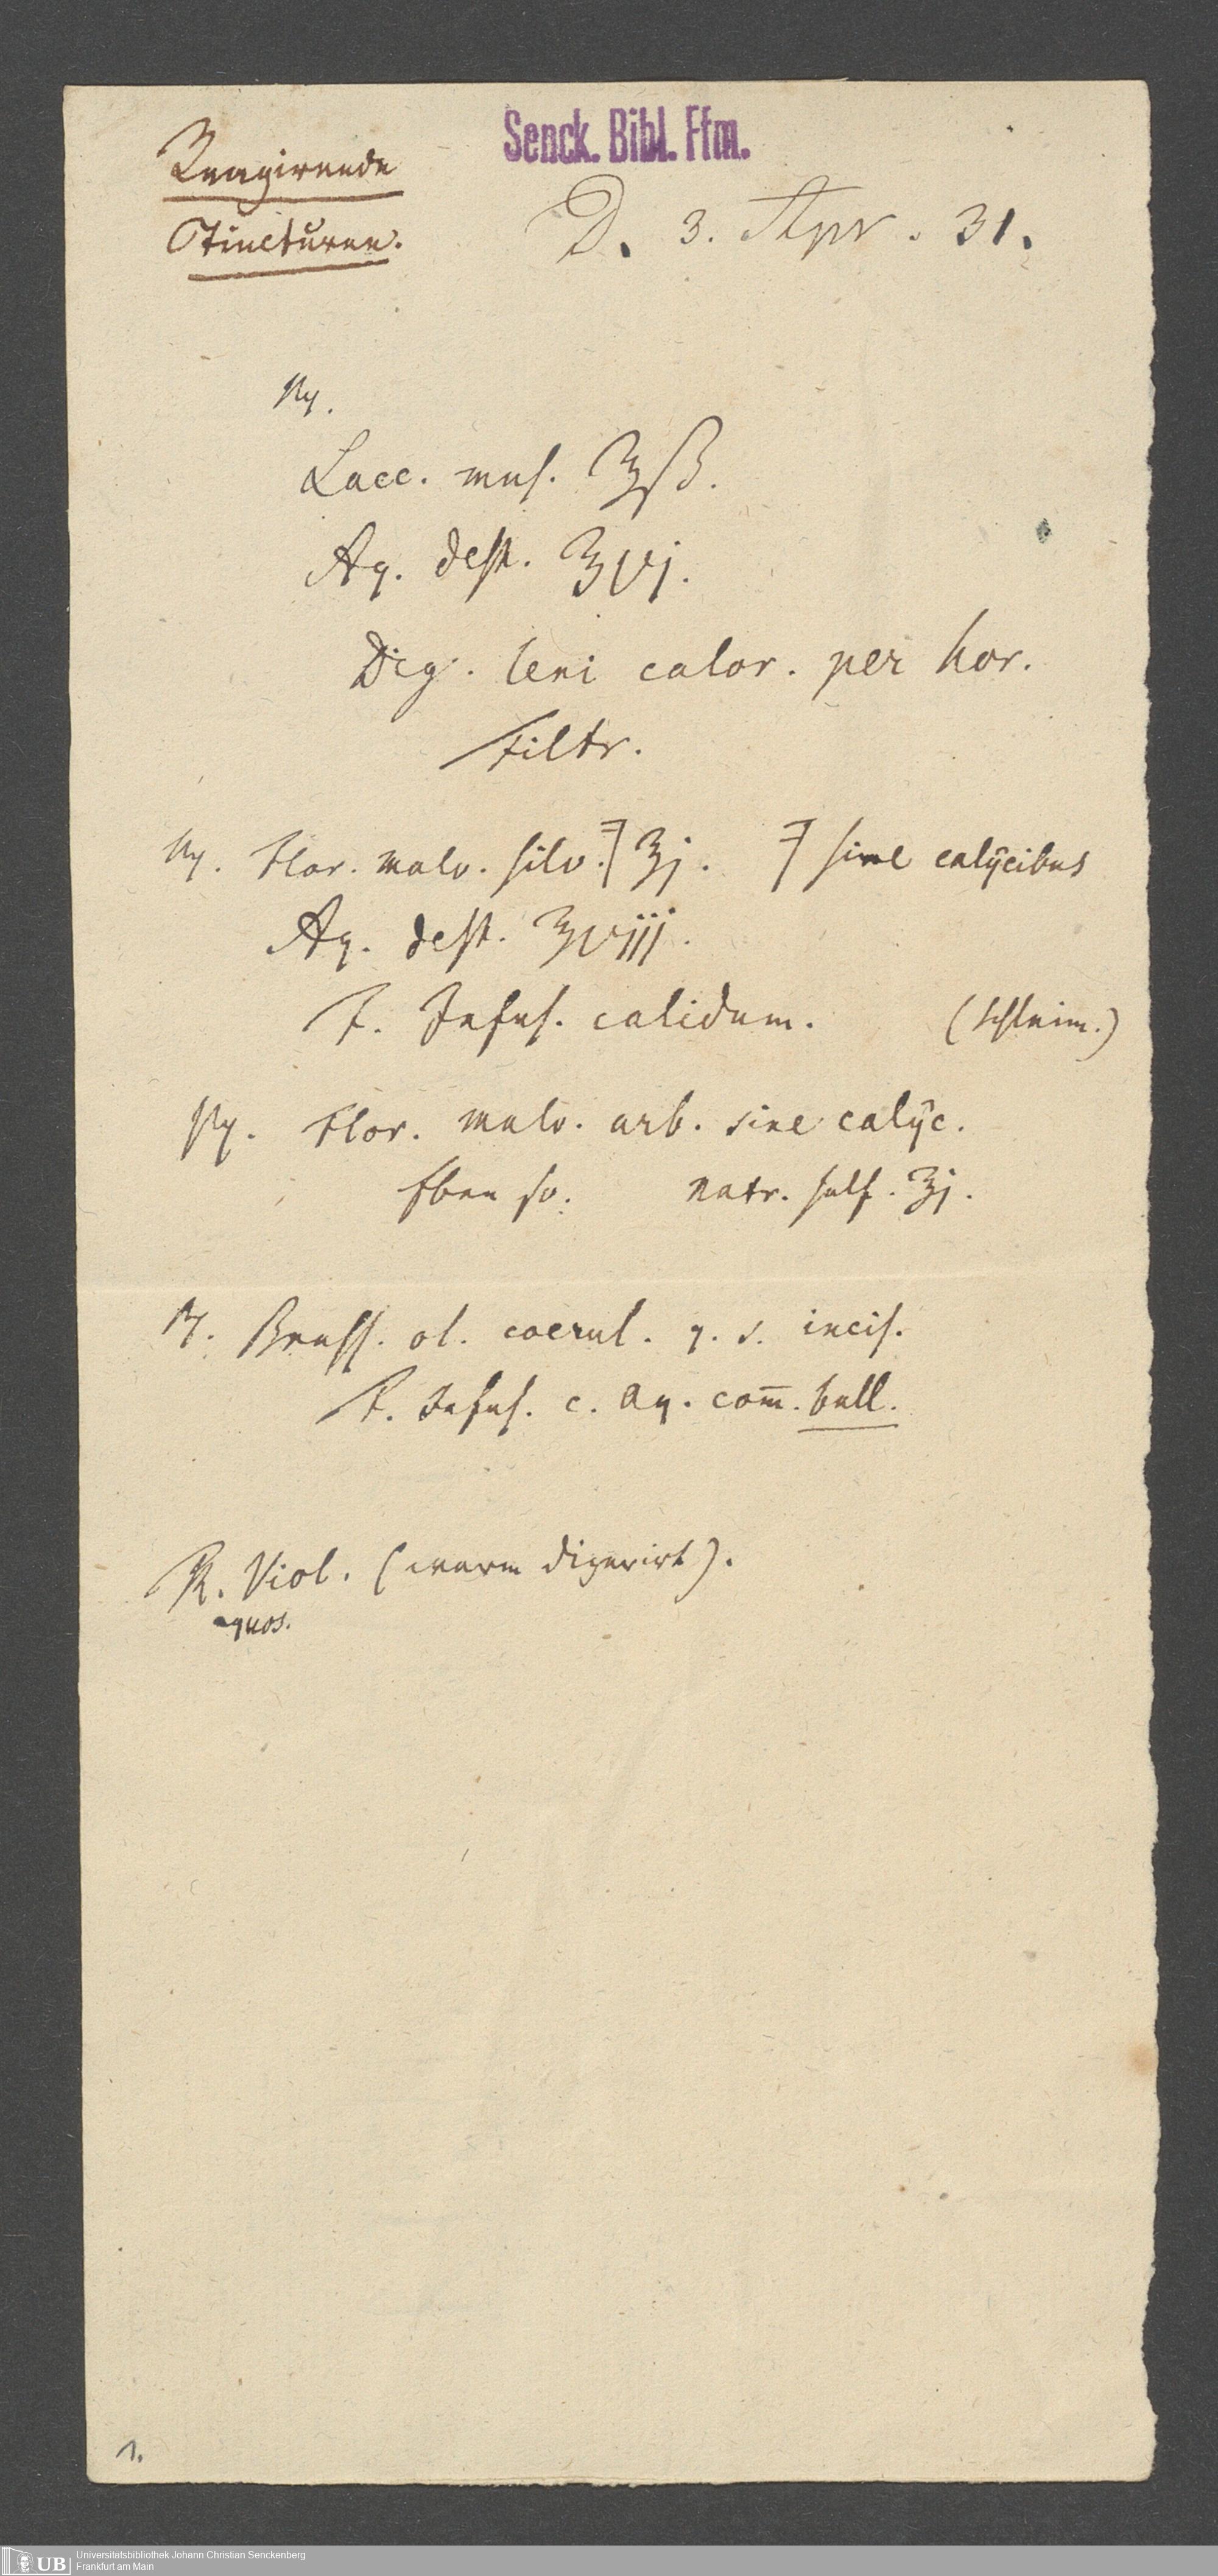 Senck. Bibl. Ffm.
Reagirende
Tincturen.
D. 3. Apr. 31.
Rp.
Lacc. mus. ℥ß.
Aq. dest. ℥vj.
Dig. leni calor. per hor.
Filtr.
Rp. Flor. malv. silv. ℥j. sine calÿcibus
Aq. dest. ℥viij.
F. Infus. calidum. (schleim.)
Rp. Flor. malv. arb. sine calÿc.
Eben so. natr. sulf. ʒj.
R. Brass. ol. coerul. q. s. incis.
F. Infus. c. aq. com̅. bull.
R. Viol. (warm digerirt).
aquos.
1.
UB
Universitätsbibliothek Johann Christian Senckenberg
Frankfurt am Main